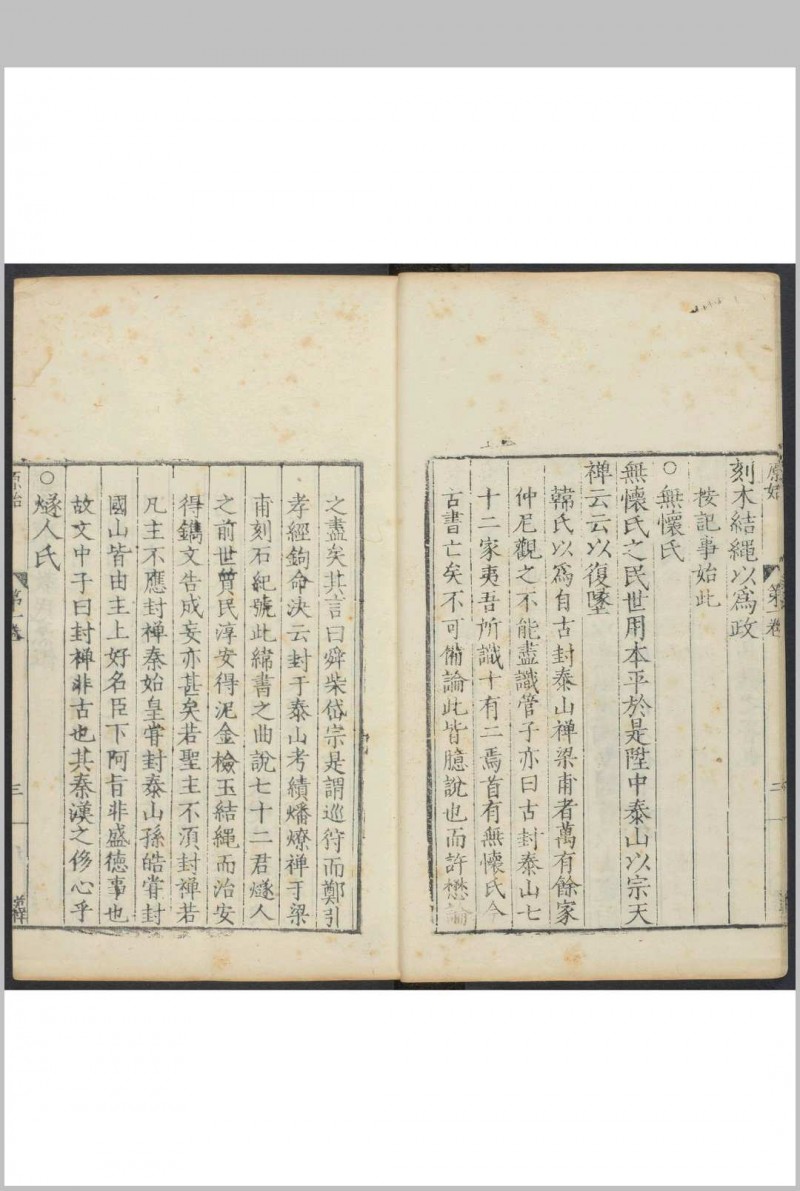 原始
第一卷
三
刻木結繩以爲政
按記事始此
○無懷氏
無懷氏之民世用本平於是陞中泰山以宗天
禅云云以復墬
韓氏以爲自古封泰山禅梁甫者萬有餘家
仲尼觀之不能盡識管子亦曰古封泰山七
十二家夷吾所識十有二焉首有無懷氏今
古書亡矣不可備論此皆臆說也而許懋論
之盡矣其言曰舜柴岱宗是謂巡狩而鄭引
孝經鉤命決云封于泰山考績燔燎禅于梁
甫刻石紀號此緯書之曲說七十二君燧人
之前世質民淳安得泥金檢玉結繩而治安
得鐫文告成妄亦甚矣若聖主不湏封禅若
凡主不應封禅秦始皇甞封泰山孫皓甞封
國山皆由主上好名臣下阿旨非盛德事也
故文中子曰封禅非古也其秦漢之侈心乎
○燧人氏
原始
第一卷
三